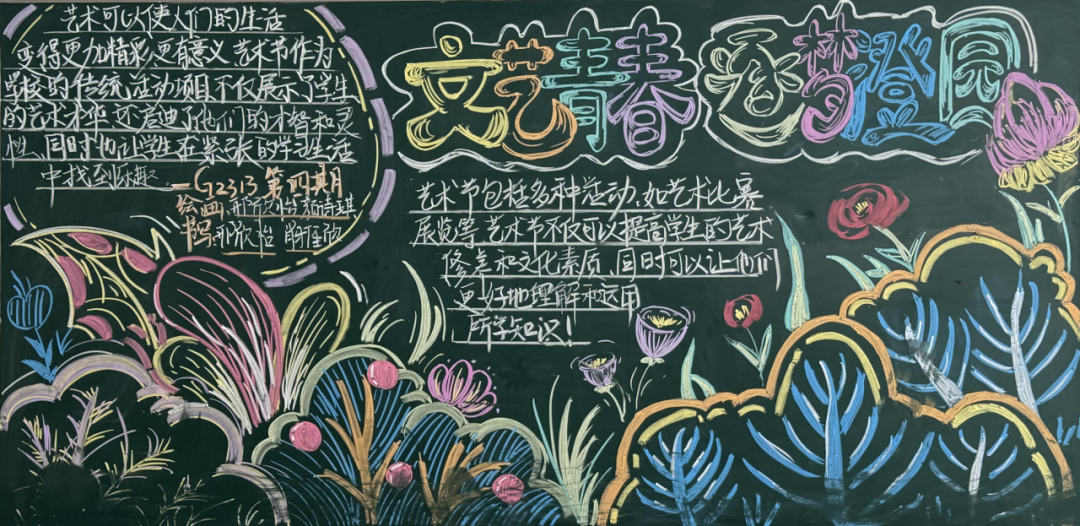 文艺青春 逐梦澄园
艺术可以使人们的生活
变得更加精彩更有意义 艺术节作为
学校的传统活动项目不仅展示了学生
的艺术才华 还启迪了他们的才智和灵
性、同时也让学生在紧张的学习生活
中找到乐趣
G2313 第四期
绘画:
书写: 邢欣怡
艺术节包括多种活动、如艺术比赛
展览等 艺术节不仅可以提高学生的艺术
修养和文化素质、同时可以让他们
更好地理解和运用
所学知识!